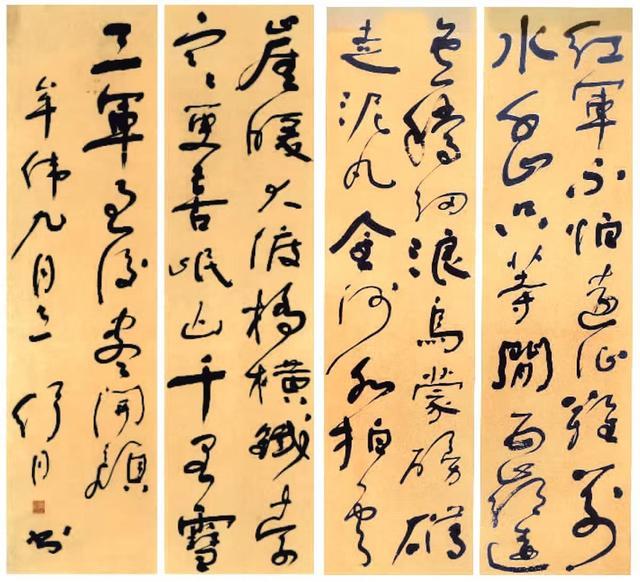 紅軍不怕遠征難萬
水千山只等閒五嶺逶
迤騰細浪烏蒙磅礴
走泥丸金沙水拍雲
崖暖大渡橋橫鐵索
寒更喜岷山千里雪
三軍過後盡開顏
偉九月 月書